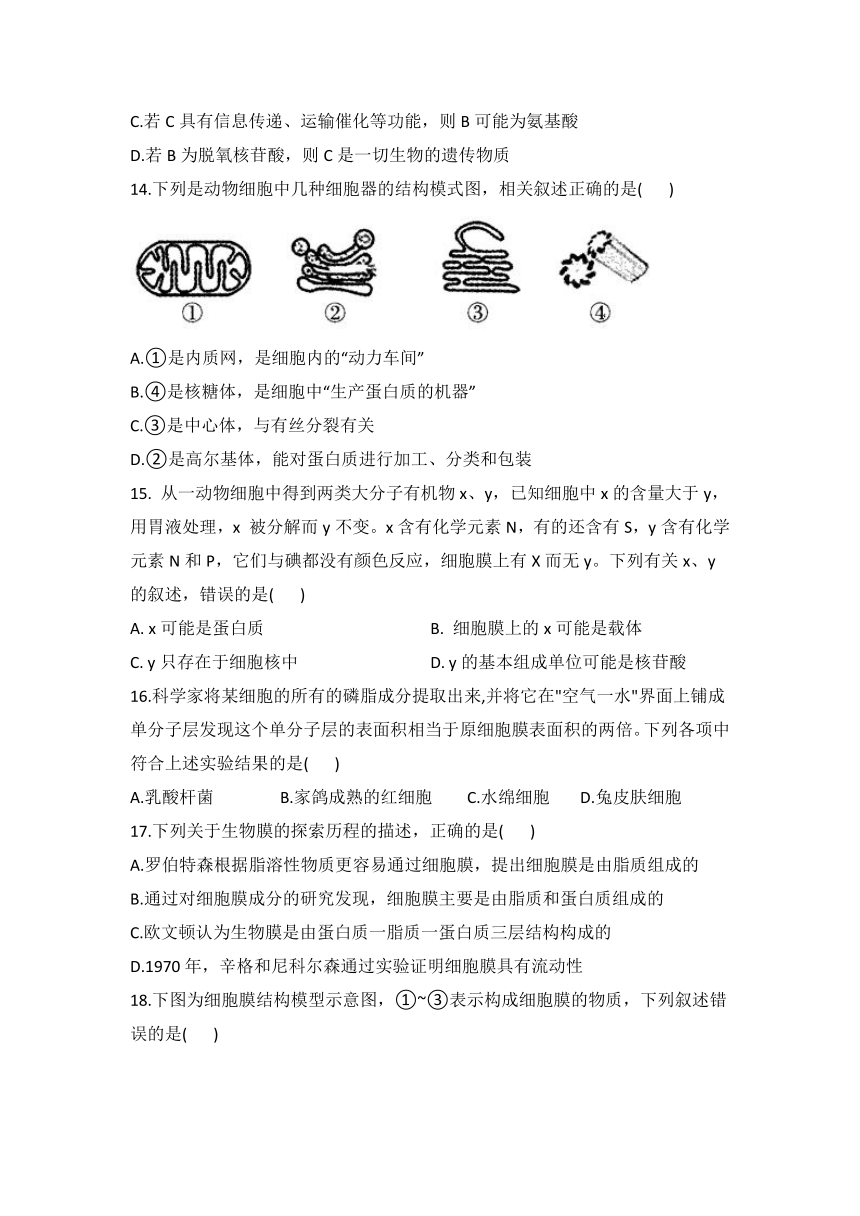 C.若 C 具有信息传递、运输催化等功能，则 B 可能为氨基酸
D.若 B 为脱氧核苷酸，则 C 是一切生物的遗传物质
14.下列是动物细胞中几种细胞器的结构模式图，相关叙述正确的是(      )
① ② ③ ④
A.①是内质网，是细胞内的“动力车间”
B.④是核糖体，是细胞中“生产蛋白质的机器”
C.③是中心体，与有丝分裂有关
D.②是高尔基体，能对蛋白质进行加工、分类和包装
15. 从一动物细胞中得到两类大分子有机物 x、y，已知细胞中 x 的含量大于 y，
用胃液处理，x 被分解而 y 不变。x 含有化学元素 N，有的还含有 S，y 含有化学
元素 N 和 P，它们与碘都没有颜色反应，细胞膜上有 X 而无 y。下列有关 x、y
的叙述，错误的是(      )
A. x 可能是蛋白质 B. 细胞膜上的 x 可能是载体
C. y 只存在于细胞核中 D. y 的基本组成单位可能是核苷酸
16.科学家将某细胞的所有的磷脂成分提取出来,并将它在"空气一水"界面上铺成
单分子层发现这个单分子层的表面积相当于原细胞膜表面积的两倍。下列各项中
符合上述实验结果的是(      )
A.乳酸杆菌 B.家鸽成熟的红细胞 C.水绵细胞 D.兔皮肤细胞
17.下列关于生物膜的探索历程的描述，正确的是(      )
A.罗伯特森根据脂溶性物质更容易通过细胞膜，提出细胞膜是由脂质组成的
B.通过对细胞膜成分的研究发现，细胞膜主要是由脂质和蛋白质组成的
C.欧文顿认为生物膜是由蛋白质一脂质一蛋白质三层结构构成的
D.1970 年，辛格和尼科尔森通过实验证明细胞膜具有流动性
18.下图为细胞膜结构模型示意图，①~③表示构成细胞膜的物质，下列叙述错
误的是(      )